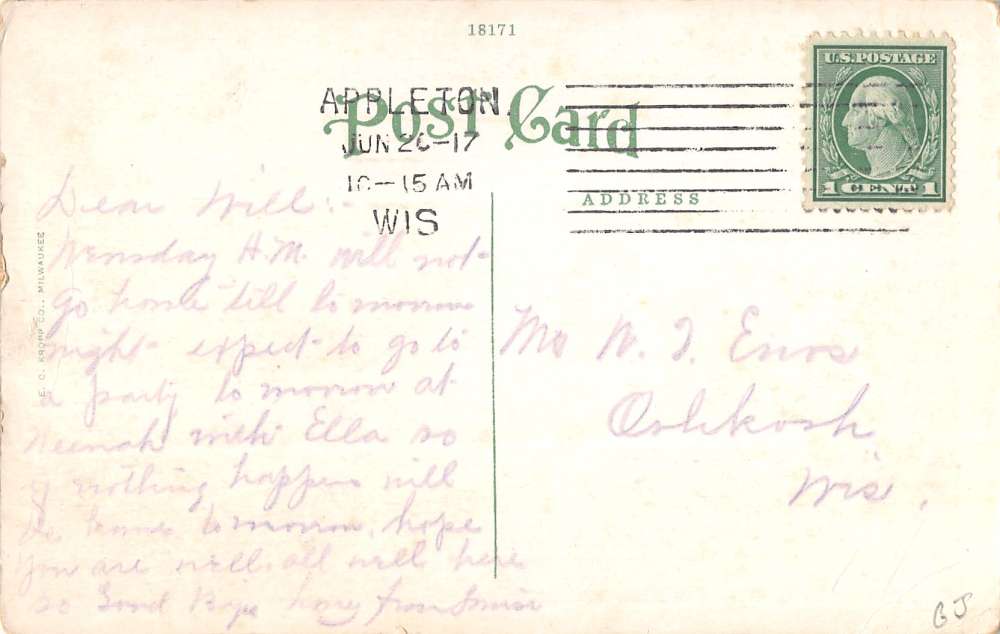 18171
Post Card
APPLETON.
JUN 26-17
10-15 AM
WIS
U.S. POSTAGE
1 CENT 1
ADDRESS
E. C. KROPP CO., MILWAUKEE
Dear Will:-
Wensday A.M. will not
go home till to morrow
night expect to go to
a party to morrow at
Neenah with Ella so
if nothing happens will
be home to morrow, hope
you are well, all well here
so Good Bye from
W. J. Enos
Oshkosh
Wis.
GJ